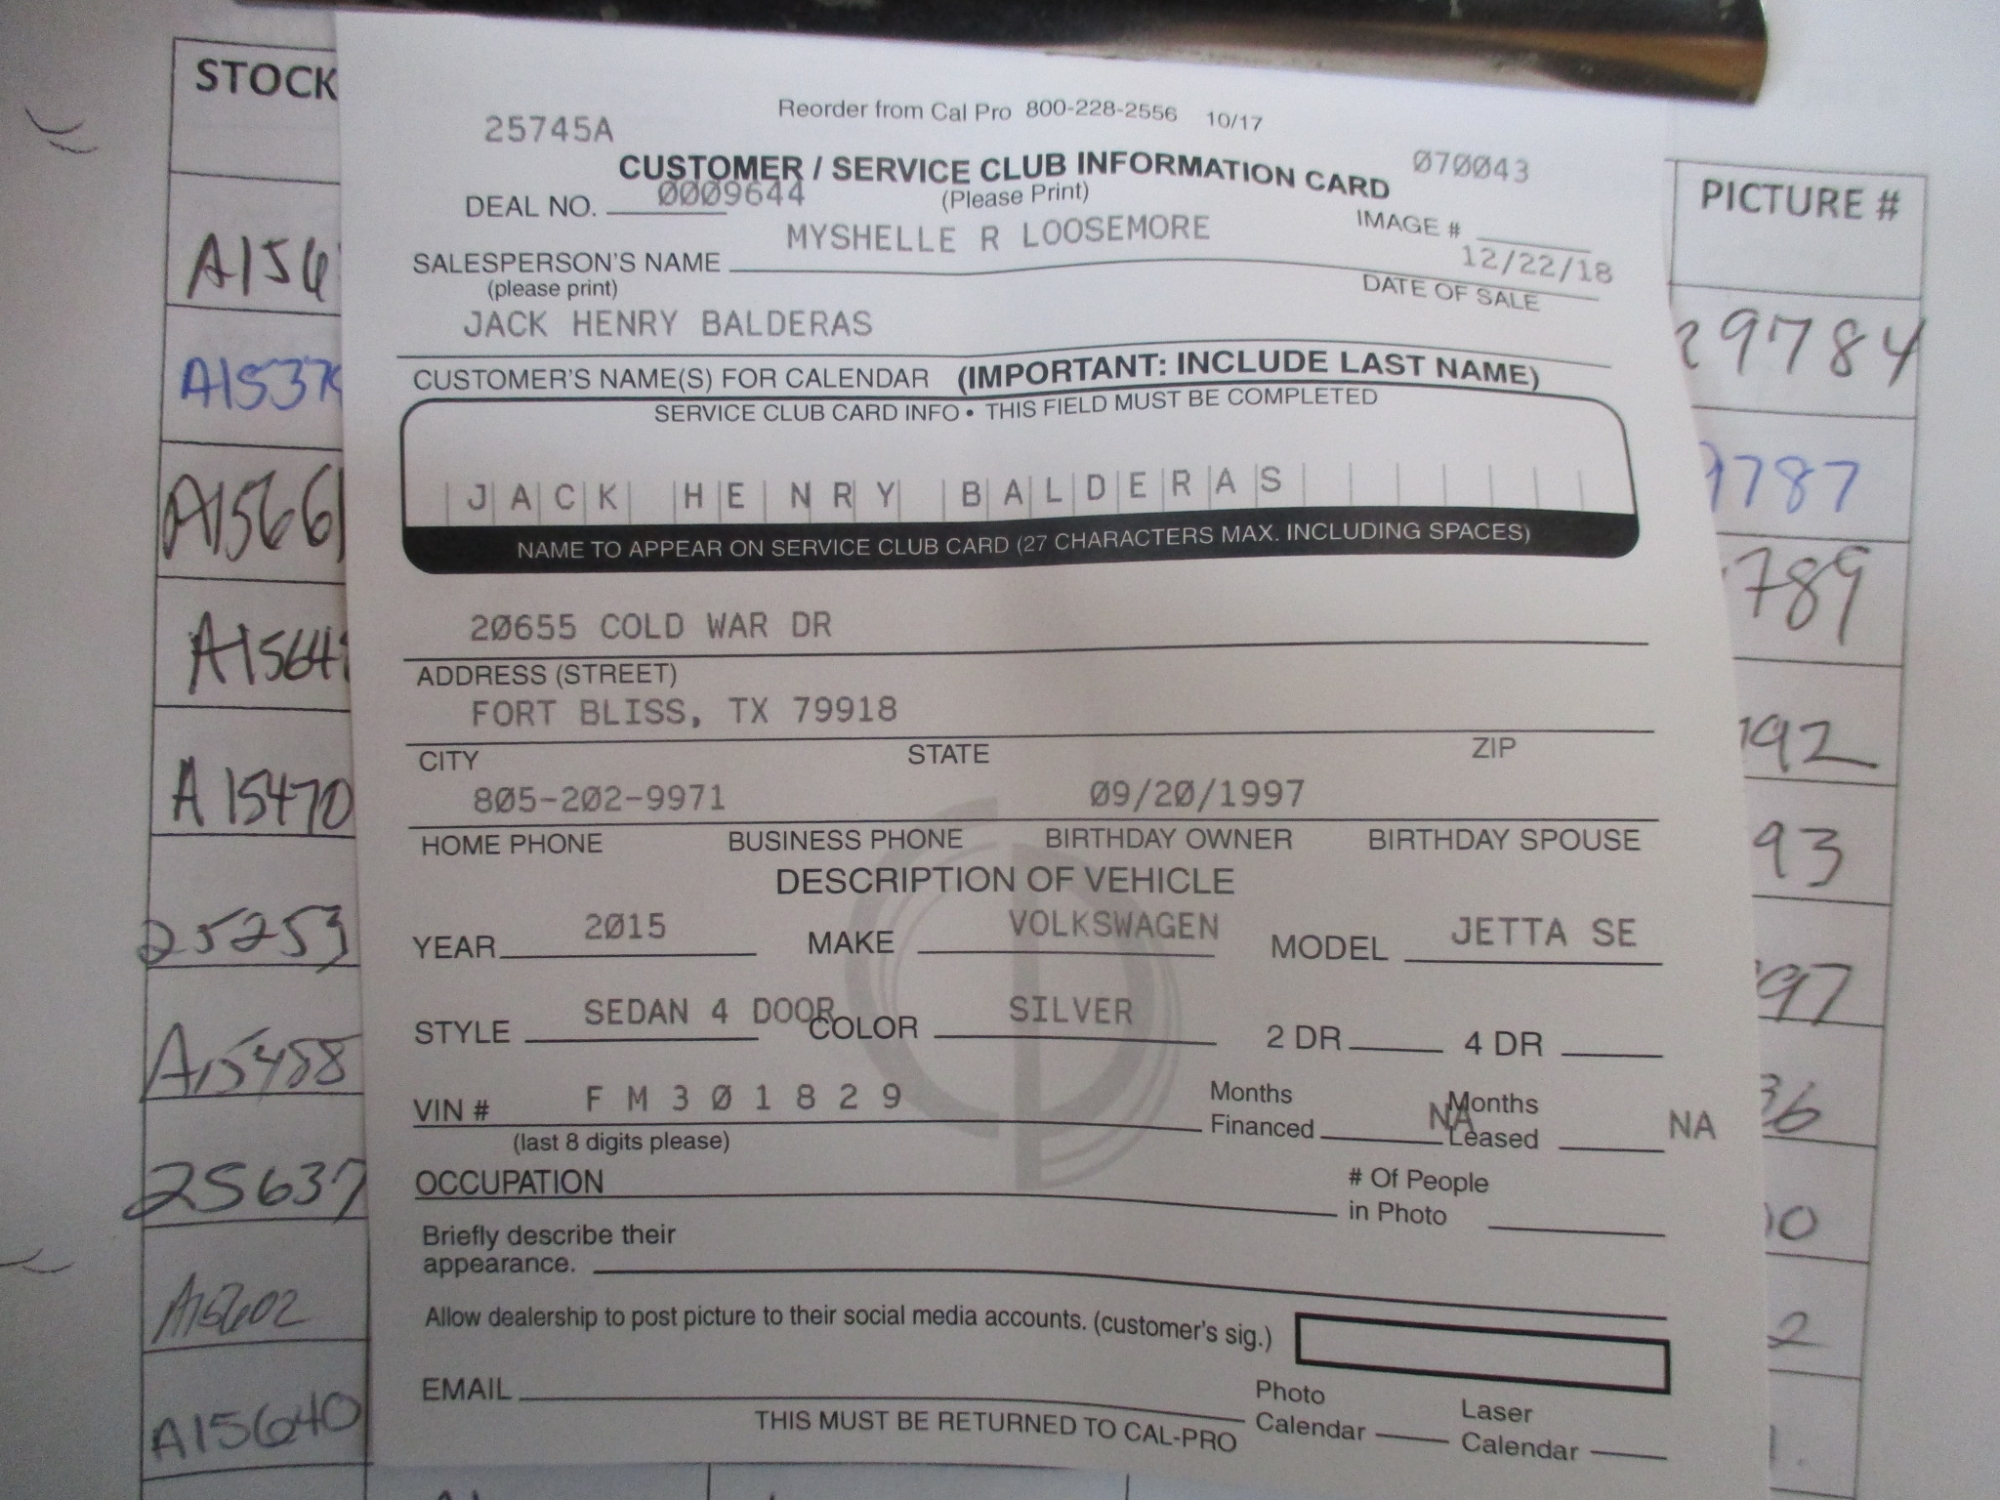 STOCK
A1566
A15470
25253
A15488
25637
A15602
A15640
Reorder from Cal Pro 800-228-2556 10/17
25745A
070043
CUSTOMER / SERVICE CLUB INFORMATION CARD
DEAL NO. 0009644 (Please Print)
IMAGE #
SALESPERSON'S NAME MYSHELLE R LOOSEMORE
12/22/18
(please print)
DATE OF SALE
JACK HENRY BALDERAS
CUSTOMER'S NAME(S) FOR CALENDAR (IMPORTANT: INCLUDE LAST NAME)
SERVICE CLUB CARD INFO • THIS FIELD MUST BE COMPLETED
JACK HENRY BALDERAS
NAME TO APPEAR ON SERVICE CLUB CARD (27 CHARACTERS MAX. INCLUDING SPACES)
20655 COLD WAR DR
ADDRESS (STREET)
FORT BLISS, TX 79918
CITY STATE ZIP
805-202-9971 09/20/1997
HOME PHONE BUSINESS PHONE BIRTHDAY OWNER BIRTHDAY SPOUSE
DESCRIPTION OF VEHICLE
YEAR 2015 MAKE VOLKSWAGEN MODEL JETTA SE
STYLE SEDAN 4 DOOR COLOR SILVER 2 DR 4 DR
VIN # F M 3 0 1 8 2 9 Months Financed NA Months Leased NA
(last 8 digits please)
OCCUPATION # Of People
in Photo
Briefly describe their
appearance.
Allow dealership to post picture to their social media accounts. (customer's sig.)
EMAIL Photo Calendar Laser Calendar
THIS MUST BE RETURNED TO CAL-PRO
PICTURE #
29784
9787
789
792
93
97
36